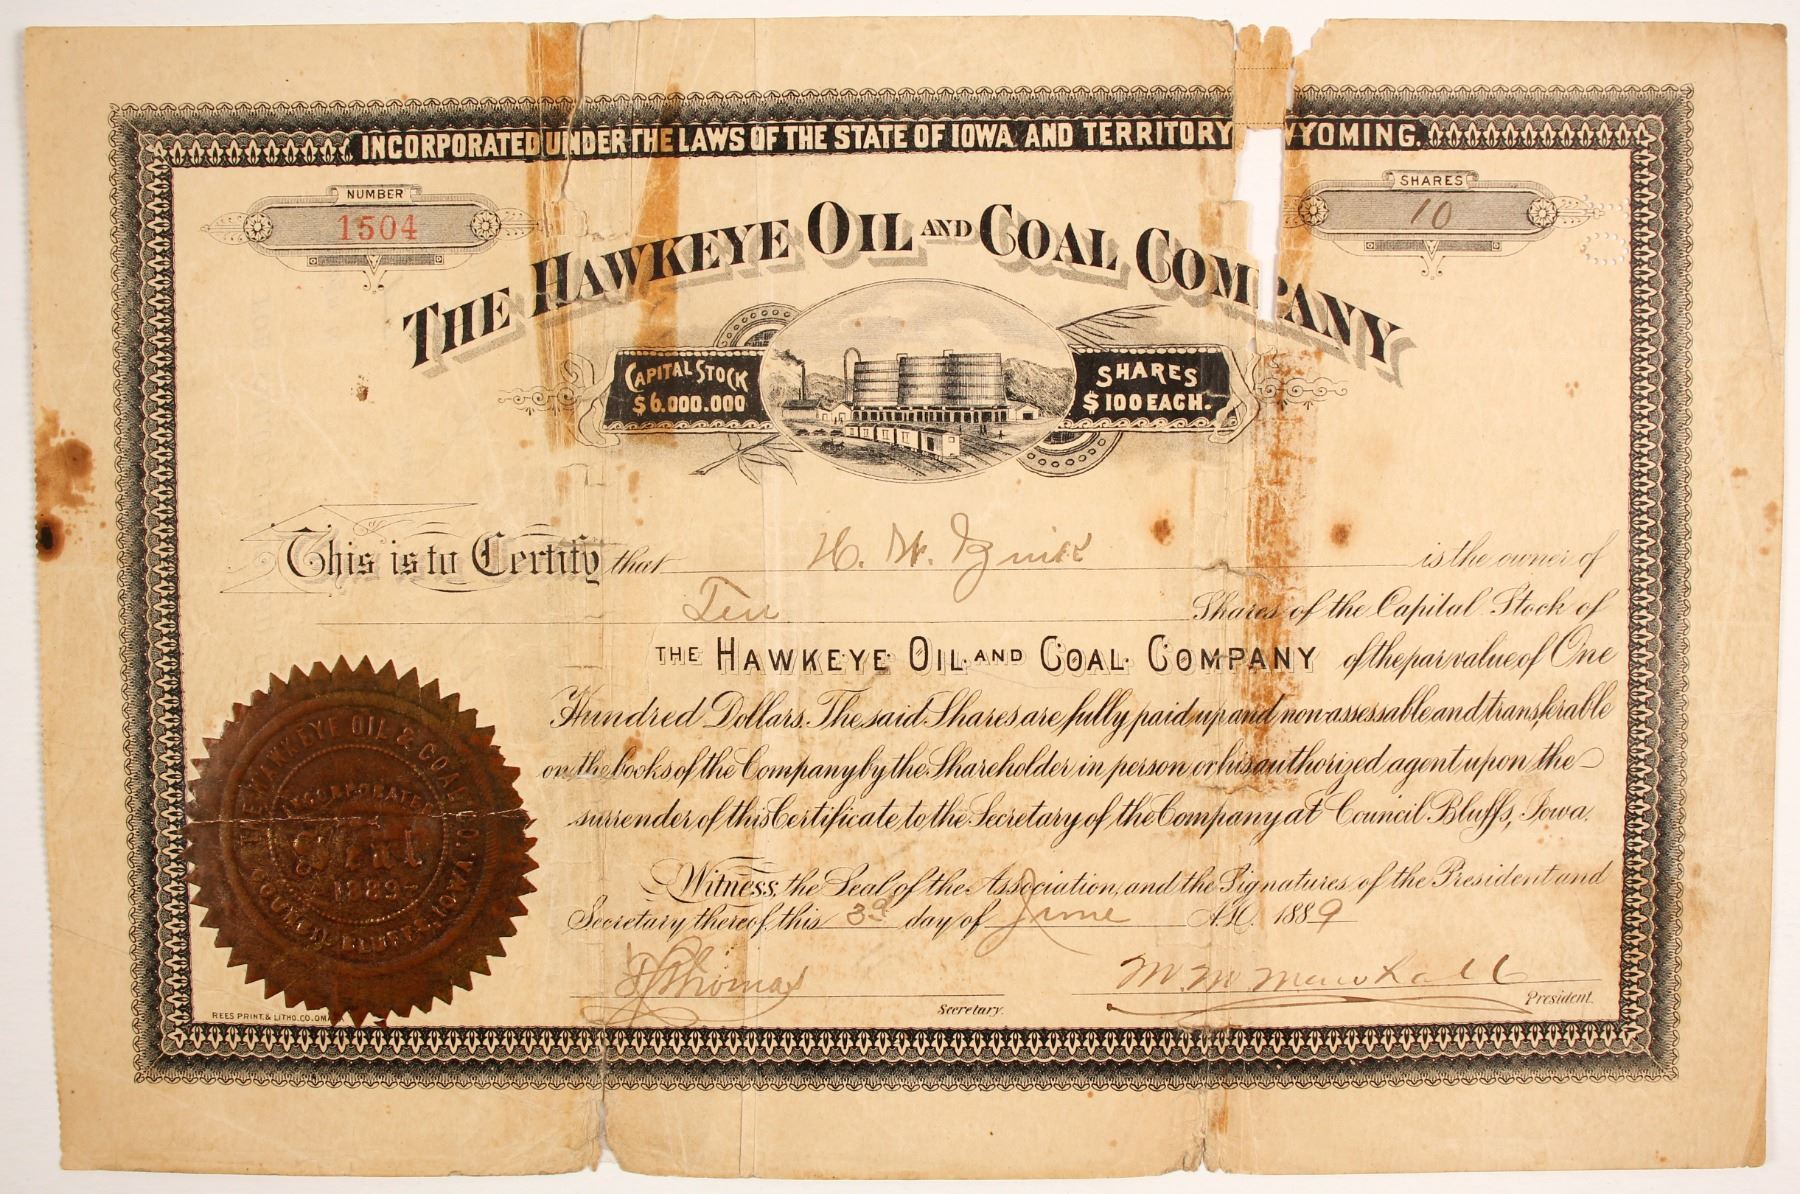 INCORPORATED UNDER THE LAWS OF THE STATE OF IOWA AND TERRITORY WYOMING.
NUMBER
1504
SHARES
10
THE HAWKEYE OIL AND COAL COMPANY
CAPITAL STOCK
$6.000.000
SHARES
$100 EACH.
This is to Certify that H. W. is the owner of
Ten Shares of the Capital Stock of
THE HAWKEYE OIL AND COAL COMPANY of the par value of One
Hundred Dollars. The said Shares are fully paid up and non-assessable and transferable
on the books of the Company by the Shareholder in person or his authorized agent upon the
surrender of this Certificate to the Secretary of the Company at Council Bluffs, Iowa.
Witness, the Seal of the Association, and the Signatures of the President and
Secretary thereof, this 3d day of June A.D. 1889
Thomas
Secretary.
M. M. Marshall
President.
THE HAWKEYE OIL & COAL CO.
INCORPORATED
Seal
1889
COUNCIL BLUFFS, IOWA
REES PRINT. & LITHO. CO. OMA